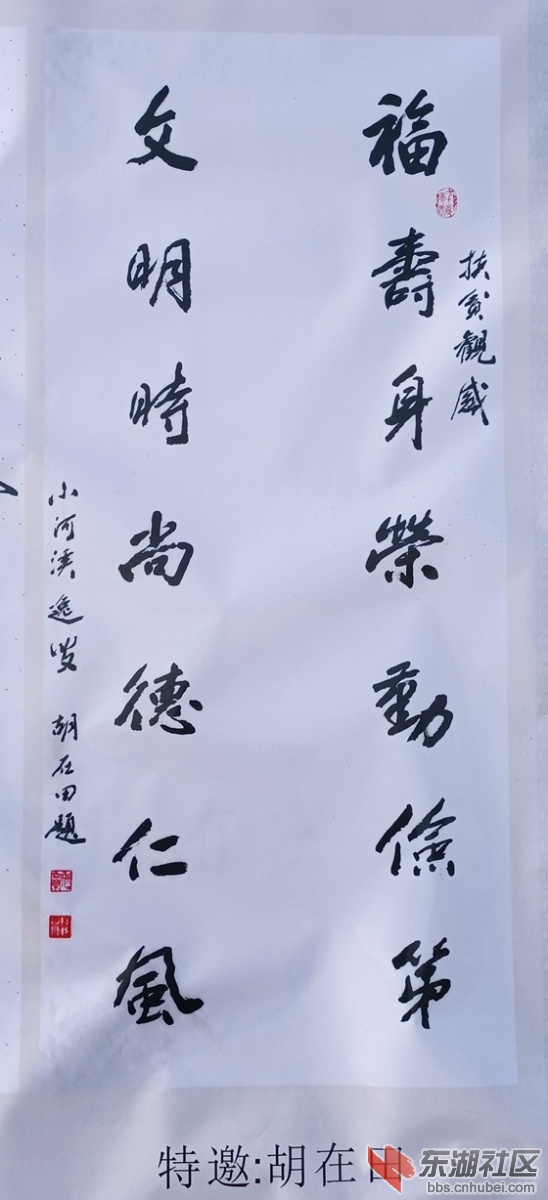 扶貧觀感
福壽身榮勤儉第
文明時尚德仁風
小河溪逸叟 胡在田題
特邀:胡在田
东湖社区
bbs.cnhubei.com